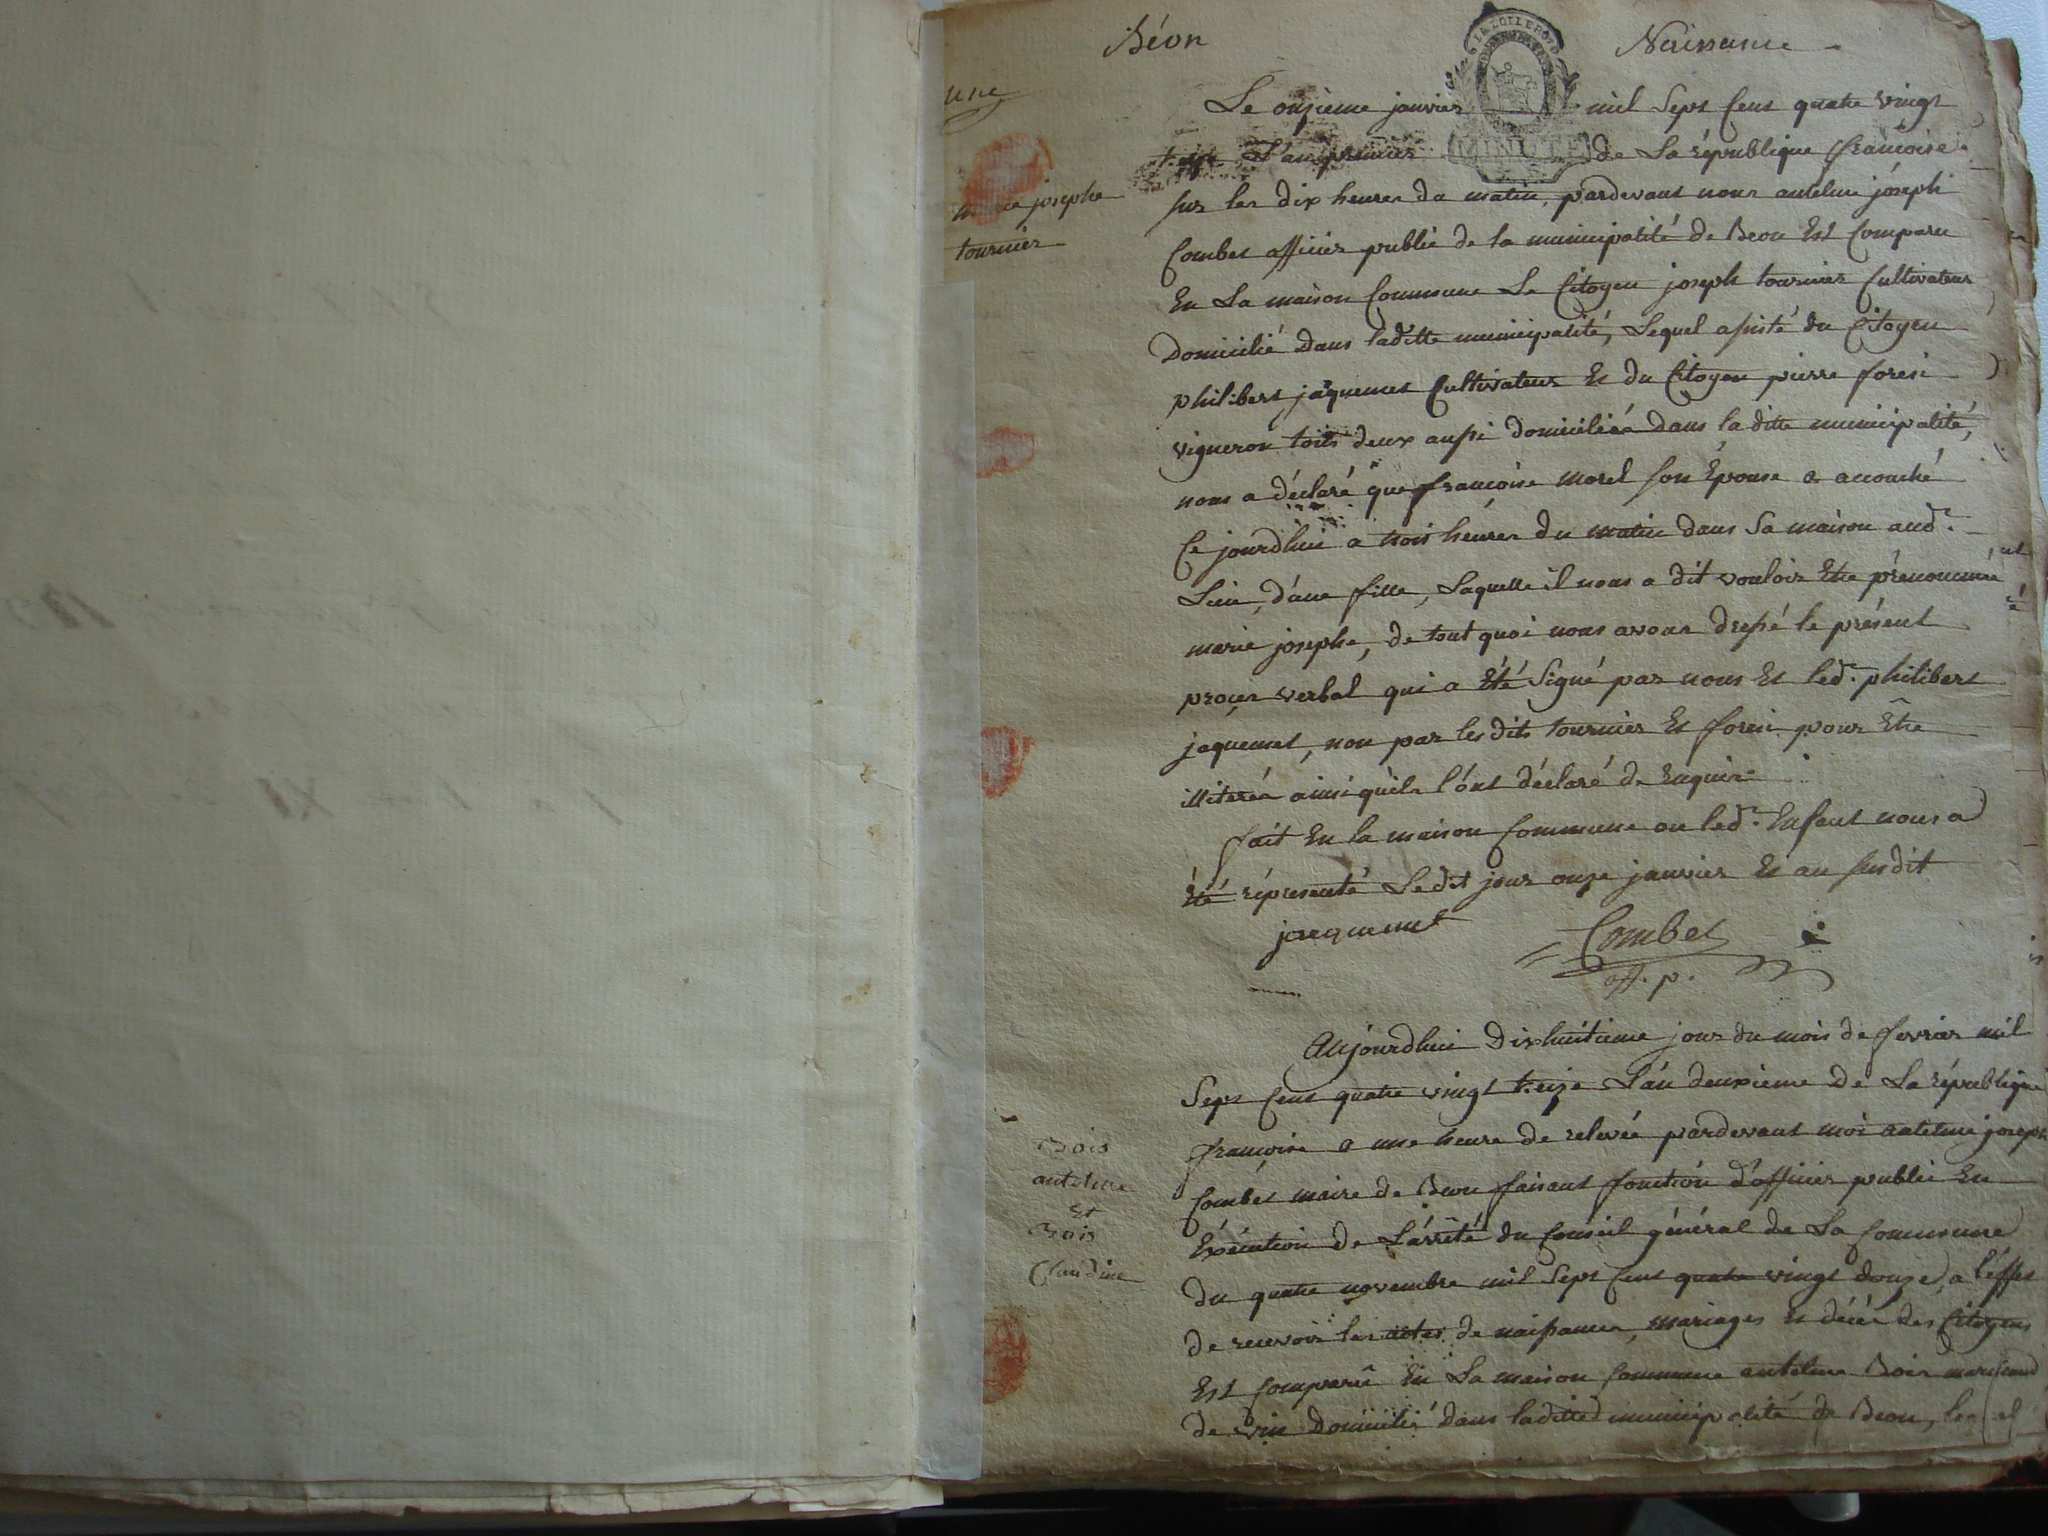 Béon
Naissance
une
Le onzieme janvier mil Sept Cent quatre vingt
L'an premier de La république francoise
MINUTE
marie josephe
tournier
sur les dix heures du matin, pardevant nous antelme joseph
Combet officier public de la municipalité de Beon Est Comparu
En La maison Commune Le Citoyen joseph tournier Cultivateur
Domicilié Dans laditte municipalité, Lequel assisté du Citoyen
philibert jaquemet Cultivateur Et du Citoyen pierre foresi
vigneron tous deux aussi domiciliés Dans la ditte municipalité,
nous a déclaré que francoise morel son Épouse a accouché
Ce jourdhui a trois heures du matin dans sa maison aud.t
Lieu, d'une fille, Laquelle il nous a dit vouloir Etre prénommée
marie josephe, de tout quoi nous avons dressé le présent
procés verbal qui a Eté Signé par nous Et led.t philibert
jaquemet, non par lesdits tournier Et foresi pour Être
illiterés ainsi qu'ils l'ónt déclaré de Enquis
fait En la maison Commune ou led.t Enfant nous a
Été répresenté Ledit jour onze janvier Et an susdit
jacquemet
Combet
off. p.
Aujourdhui Dixhuitieme jour du mois de fevrier mil
Sept Cent quatre vingt treize L'an deuxieme de La république
francoise a une heure de relevée pardevant moi antelme joseph
Combet maire de Beon faisant fonction d'officier public En
Exécution de L'árrêté du Conseil général de La Commune
du quatre novembre mil Sept Cent quatre vingt douze, a l'éffet
de recevoir les actes de naissances, mariages Et décés des Citoyens
Est Comparû En La maison Commune antelme Bois marchand
de vin Domicilié dans laditte municipalité de Beon, leq el
Bois
antelme
Et
Bois
Claudine